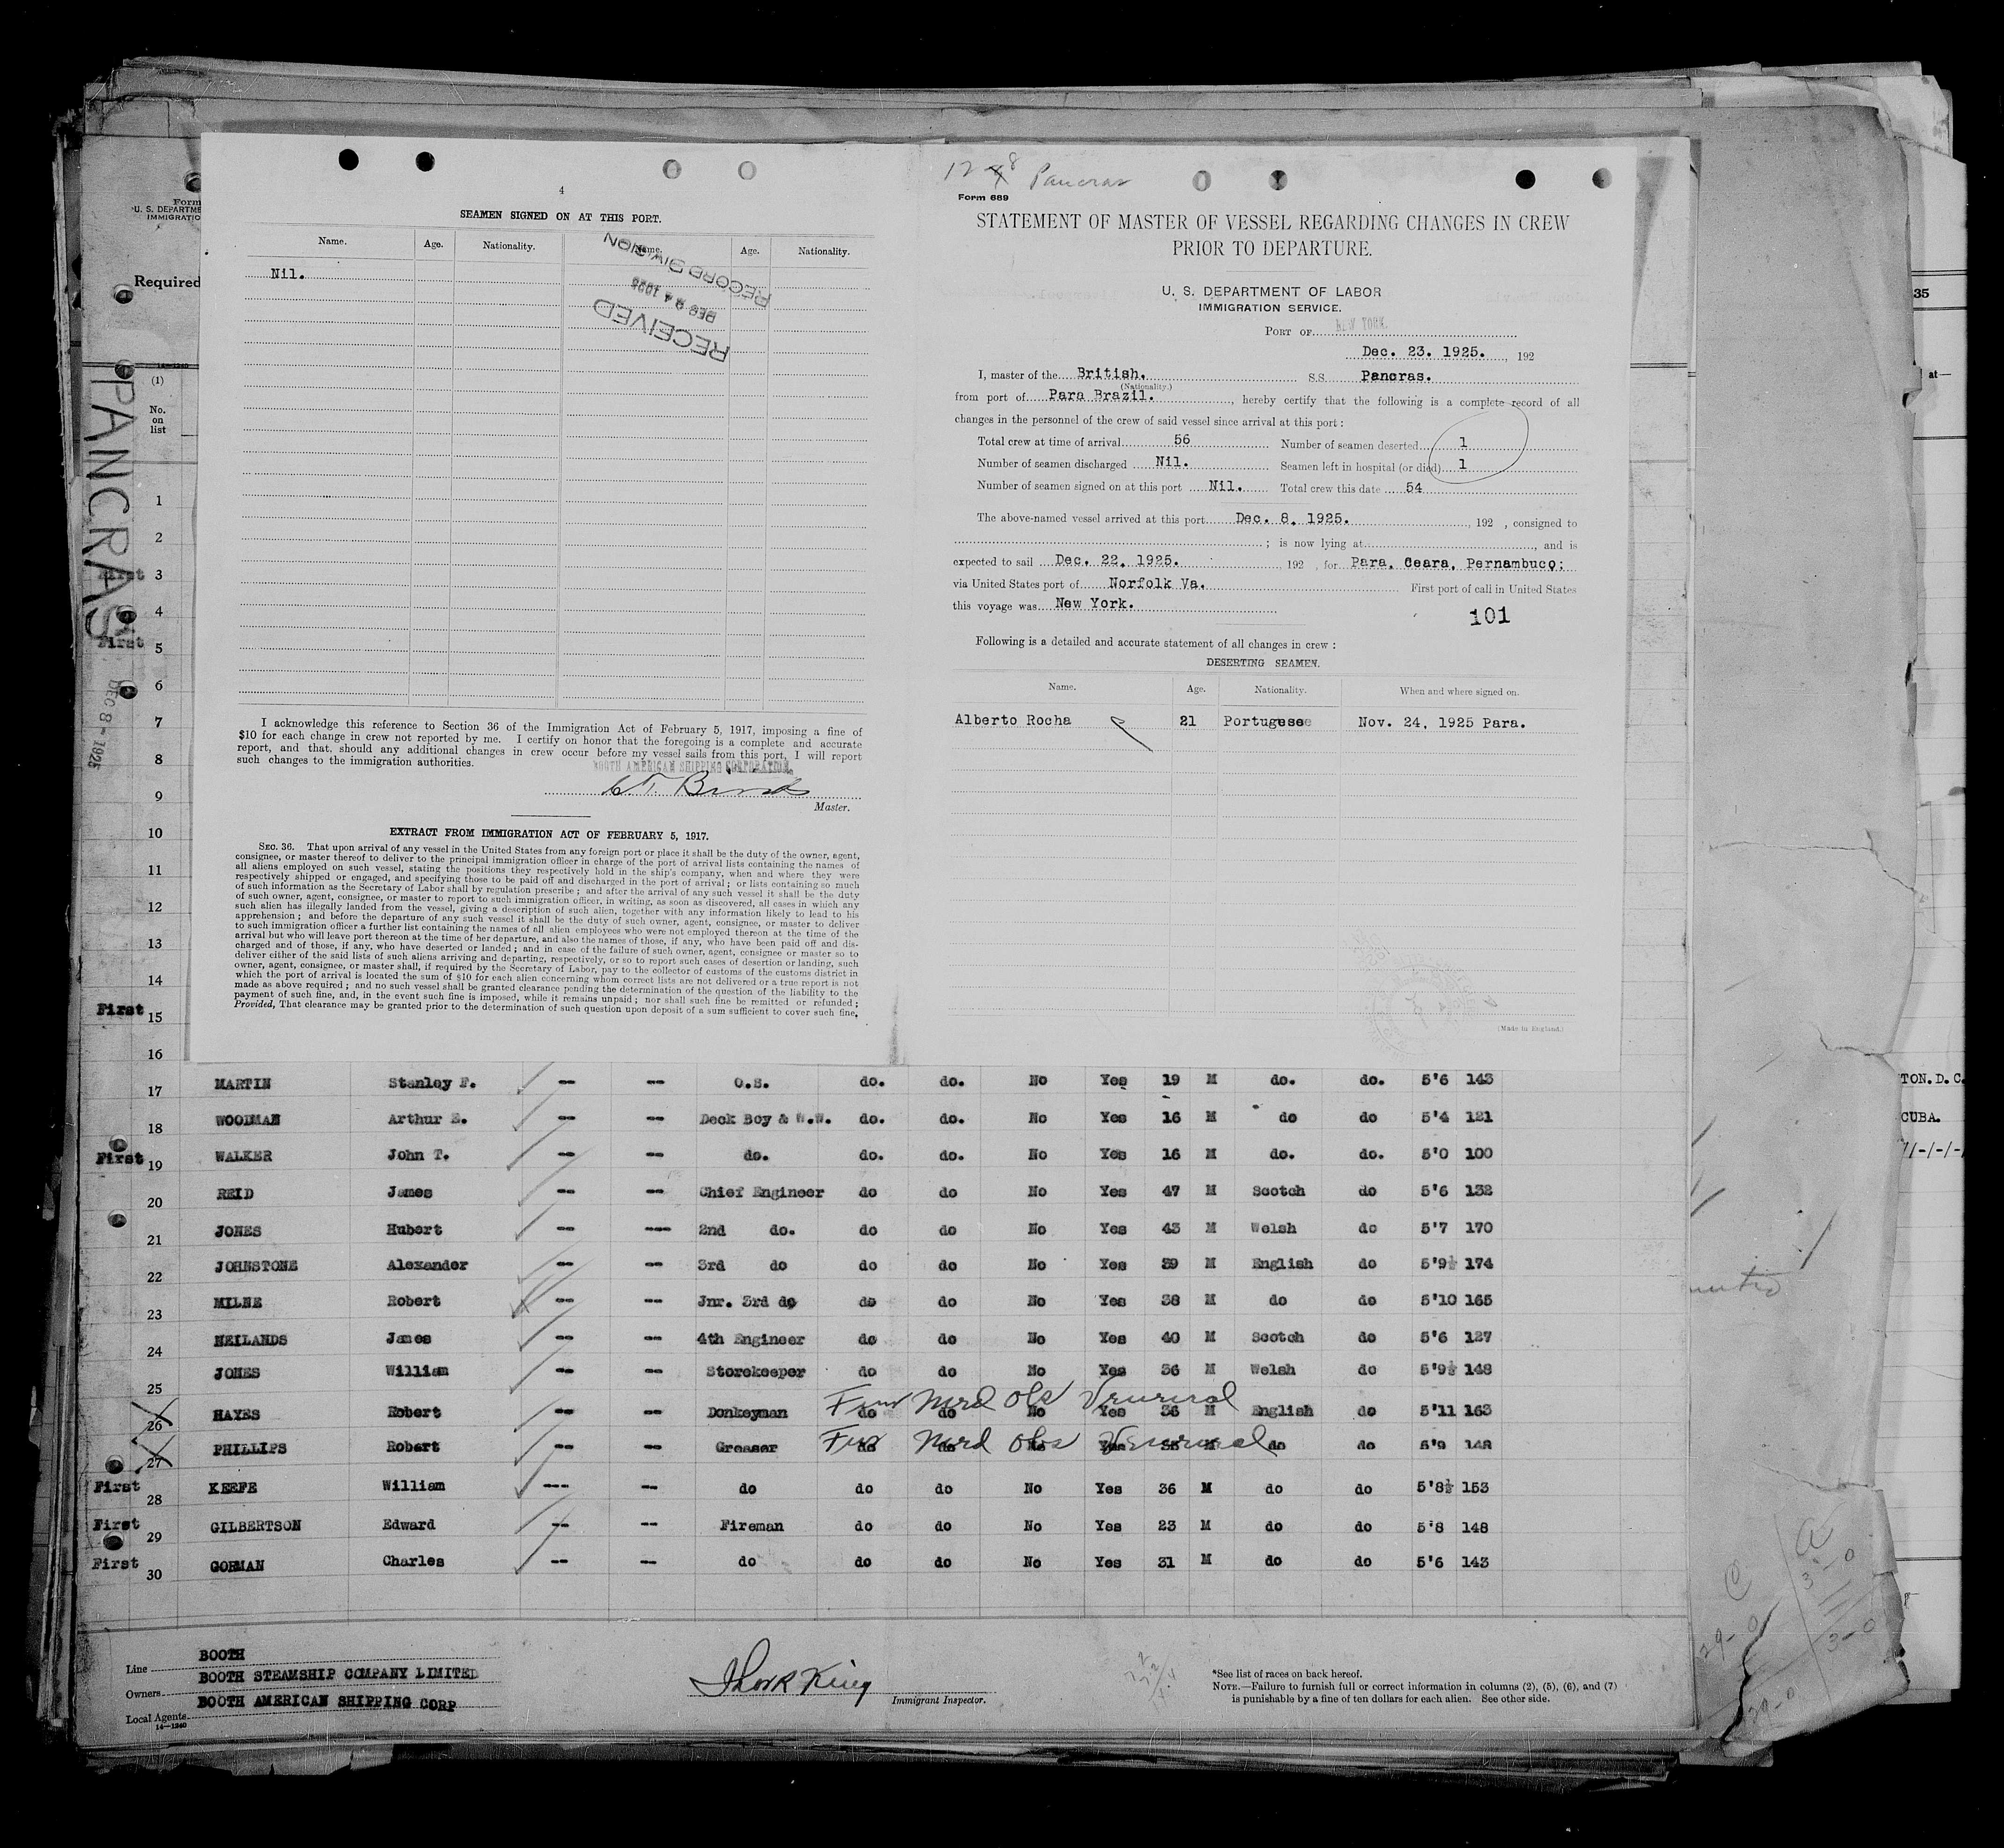 4
SEAMEN SIGNED ON AT THIS PORT.
Name. Age. Nationality. Name. Age. Nationality.
Nil.
RECEIVED
DEC 24 1925
RECORD DIVISION
I acknowledge this reference to Section 36 of the Immigration Act of February 5, 1917, imposing a fine of
$10 for each change in crew not reported by me. I certify on honor that the foregoing is a complete and accurate
report, and that, should any additional changes in crew occur before my vessel sails from this port, I will report
such changes to the immigration authorities.
BOOTH AMERICAN SHIPPING CORPORATION.
Master.
EXTRACT FROM IMMIGRATION ACT OF FEBRUARY 5, 1917.
SEC. 36. That upon arrival of any vessel in the United States from any foreign port or place it shall be the duty of the owner, agent,
consignee, or master thereof to deliver to the principal immigration officer in charge of the port of arrival lists containing the names of
all aliens employed on such vessel, stating the positions they respectively hold in the ship's company, when and where they were
respectively shipped or engaged, and specifying those to be paid off and discharged in the port of arrival; or lists containing so much
of such information as the Secretary of Labor shall by regulation prescribe; and after the arrival of any such vessel it shall be the duty
of such owner, agent, consignee, or master to report to such immigration officer, in writing, as soon as discovered, all cases in which any
such alien has illegally landed from the vessel, giving a description of such alien, together with any information likely to lead to his
apprehension; and before the departure of any such vessel it shall be the duty of such owner, agent, consignee, or master to deliver
to such immigration officer a further list containing the names of all alien employees who were not employed thereon at the time of the
arrival but who will leave port thereon at the time of her departure, and also the names of those, if any, who have been paid off and dis-
charged and of those, if any, who have deserted or landed; and in case of the failure of such owner, agent, consignee or master so to
deliver either of the said lists of such aliens arriving and departing, respectively, or so to report such cases of desertion or landing, such
owner, agent, consignee, or master shall, if required by the Secretary of Labor, pay to the collector of customs of the customs district in
which the port of arrival is located the sum of $10 for each alien concerning whom correct lists are not delivered or a true report is not
made as above required; and no such vessel shall be granted clearance pending the determination of the question of the liability to the
payment of such fine, and, in the event such fine is imposed, while it remains unpaid; nor shall such fine be remitted or refunded;
Provided, That clearance may be granted prior to the determination of such question upon deposit of a sum sufficient to cover such fine,
12 8 Pancras
Form 689
STATEMENT OF MASTER OF VESSEL REGARDING CHANGES IN CREW
PRIOR TO DEPARTURE.
U. S. DEPARTMENT OF LABOR
IMMIGRATION SERVICE.
PORT OF NEW YORK.
Dec. 23. 1925. , 192
I, master of the British. S.S. Pancras.
(Nationality.)
from port of Para Brazil. , hereby certify that the following is a complete record of all
changes in the personnel of the crew of said vessel since arrival at this port:
Total crew at time of arrival 56 Number of seamen deserted 1
Number of seamen discharged Nil. Seamen left in hospital (or died) 1
Number of seamen signed on at this port Nil. Total crew this date 54
The above-named vessel arrived at this port Dec. 8, 1925. , 192 , consigned to
; is now lying at , and is
expected to sail Dec. 22, 1925. , 192 , for Para, Ceara, Pernambuco;
via United States port of Norfolk Va. First port of call in United States
this voyage was New York.
101
Following is a detailed and accurate statement of all changes in crew:
DESERTING SEAMEN.
Name. Age. Nationality. When and where signed on.
Alberto Rocha 21 Portugesee Nov. 24, 1925 Para.
(Made in England.)
Form
U. S. DEPARTME
IMMIGRATIO
Required
(1)
No.
on
list
PANCRAS
DEC 8 - 1925
1
2
First 3
4
First 5
6
7
8
9
10
11
12
13
14
First 15
16
17 MARTIN Stanley F. -- -- O.S. do. do. No Yes 19 M do. do. 5'6 143
18 WOODMAN Arthur E. -- -- Deck Boy & W.W. do. do. No Yes 16 M do do 5'4 121
First 19 WALKER John T. -- -- do. do. do. No Yes 16 M do. do. 5'0 100
20 REID James -- -- Chief Engineer do do No Yes 47 M Scotch do 5'6 132
21 JONES Hubert -- --- 2nd do. do do No Yes 43 M Welsh do 5'7 170
22 JOHNSTONE Alexander -- -- 3rd do do do No Yes 39 M English do 5'9½ 174
23 MILNE Robert -- -- Jnr. 3rd do do do No Yes 38 M do do 5'10 165
24 NEILANDS James -- -- 4th Engineer do do No Yes 40 M Scotch do 5'6 127
25 JONES William -- -- Storekeeper do do No Yes 36 M Welsh do 5'9½ 148
26 HAYES Robert -- -- Donkeyman do do No Yes 36 M English do 5'11 163
27 PHILLIPS Robert -- -- Greaser do do No Yes M do do 5'9 148
First 28 KEEFE William --- -- do do do No Yes 36 M do do 5'8½ 153
First 29 GILBERTSON Edward -- -- Fireman do do No Yes 23 M do do 5'8 148
First 30 GORMAN Charles -- -- do do do No Yes 31 M do do 5'6 143
Line BOOTH
Owners BOOTH STEAMSHIP COMPANY LIMITED
Local Agents BOOTH AMERICAN SHIPPING CORP
14—1240
King
Immigrant Inspector.
*See list of races on back hereof.
NOTE.—Failure to furnish full or correct information in columns (2), (5), (6), and (7)
is punishable by a fine of ten dollars for each alien. See other side.
35
at—
TON. D. C.
CUBA.